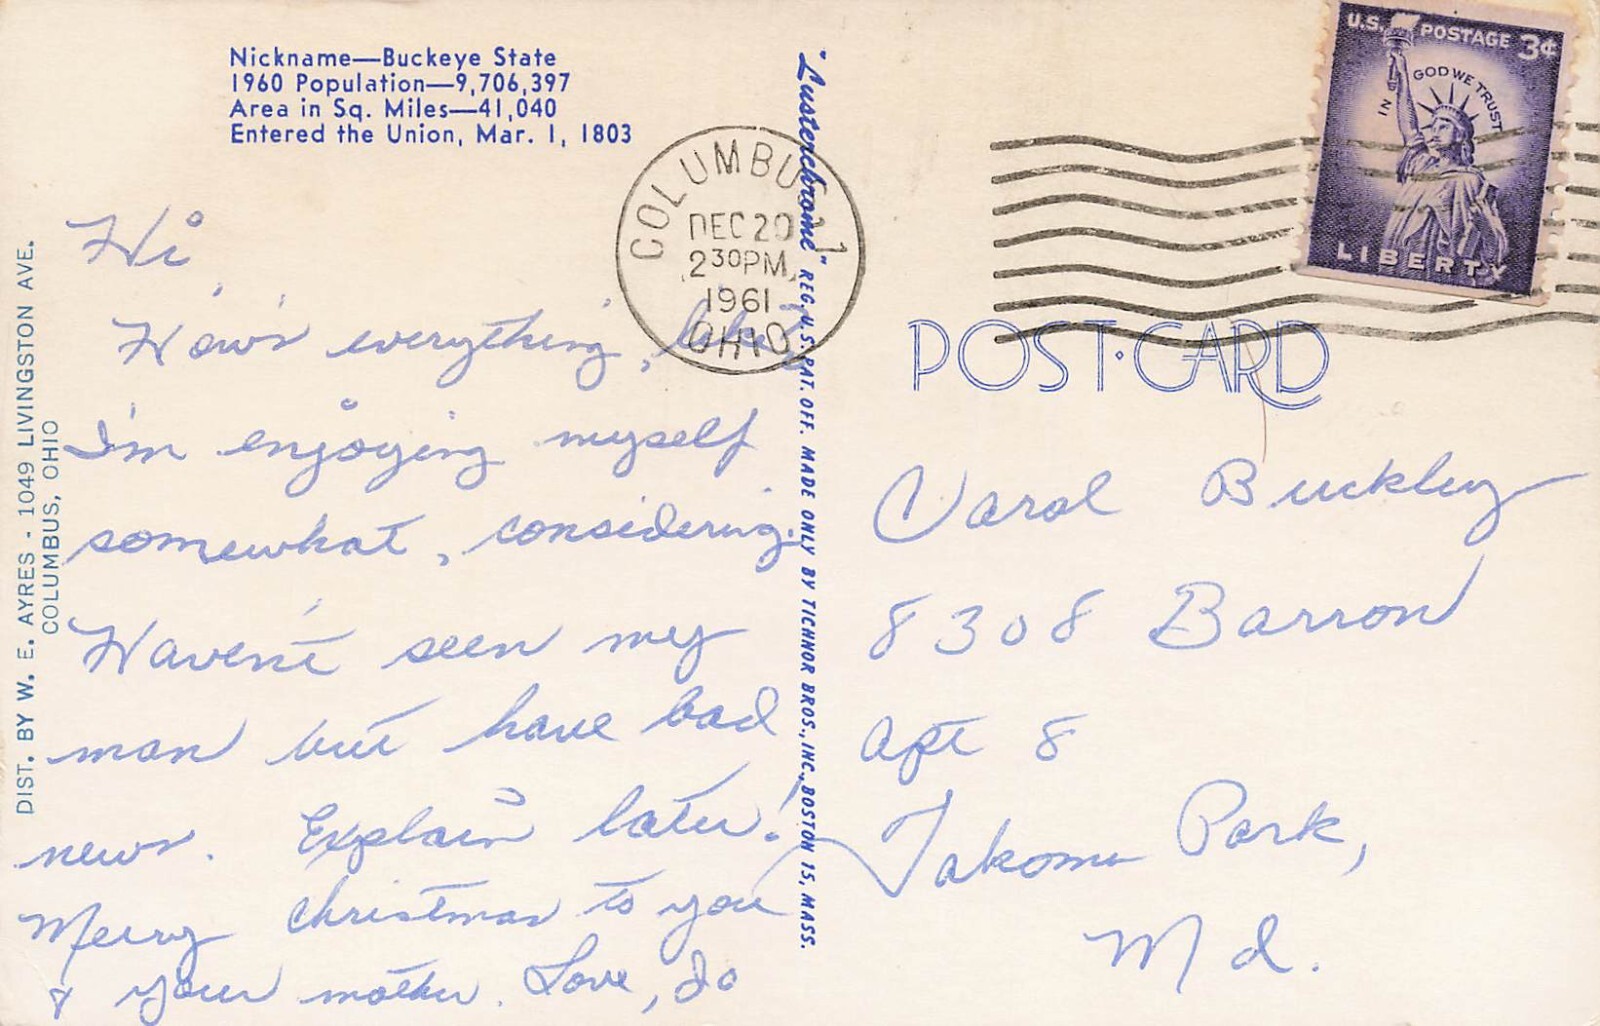 Nickname—Buckeye State
1960 Population—9,706,397
Area in Sq. Miles—41,040
Entered the Union, Mar. 1, 1803
DIST. BY W. E. AYRES - 1049 LIVINGSTON AVE.
COLUMBUS, OHIO
Hi
How's everything,
I'm enjoying myself
somewhat, considering.
Haven't seen my
man but have bad
news. Explain later!
Merry Christmas to you
& your mother. Love, Jo
"Lusterchrome" REG. U.S. PAT. OFF. MADE ONLY BY TICHNOR BROS., INC., BOSTON 15, MASS.
COLUMBU
DEC 20
2 30 PM
1961
OHIO
U.S. POSTAGE 3¢
IN GOD WE TRUST
LIBERTY
POST·CARD
Carol Buckley
8308 Barron
Apt 8
Takoma Park,
Md.